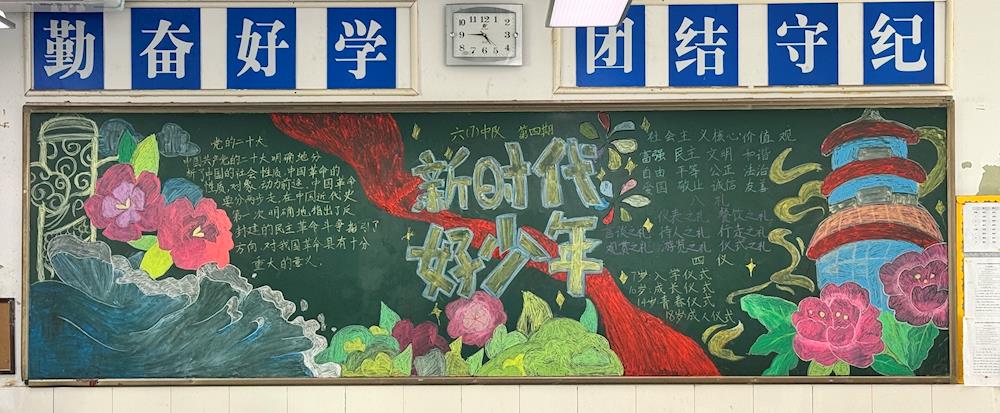 勤奋好学
团结守纪
六(7)中队 第四期
新时代
好少年
党的二十大
中国共产党的二十大明确地分
析了中国的社会性质,中国革命的
性质,对象,动力前途,中国革命
要分两步走,在中国近代史
第一次明确地指出了反
封建的民主革命斗争指引了
方向,对我国革命具有十分
重大的意义.
社会主义核心价值观
富强 民主 文明 和谐
自由 平等 公正 法治
爱国 敬业 诚信 友善
八礼
仪表之礼 餐饮之礼
言谈之礼 待人之礼 行走之礼
观赏之礼 游览之礼 仪式之礼
四仪
7岁入学仪式
10岁成长仪式
14岁青春仪式
18岁成人仪式